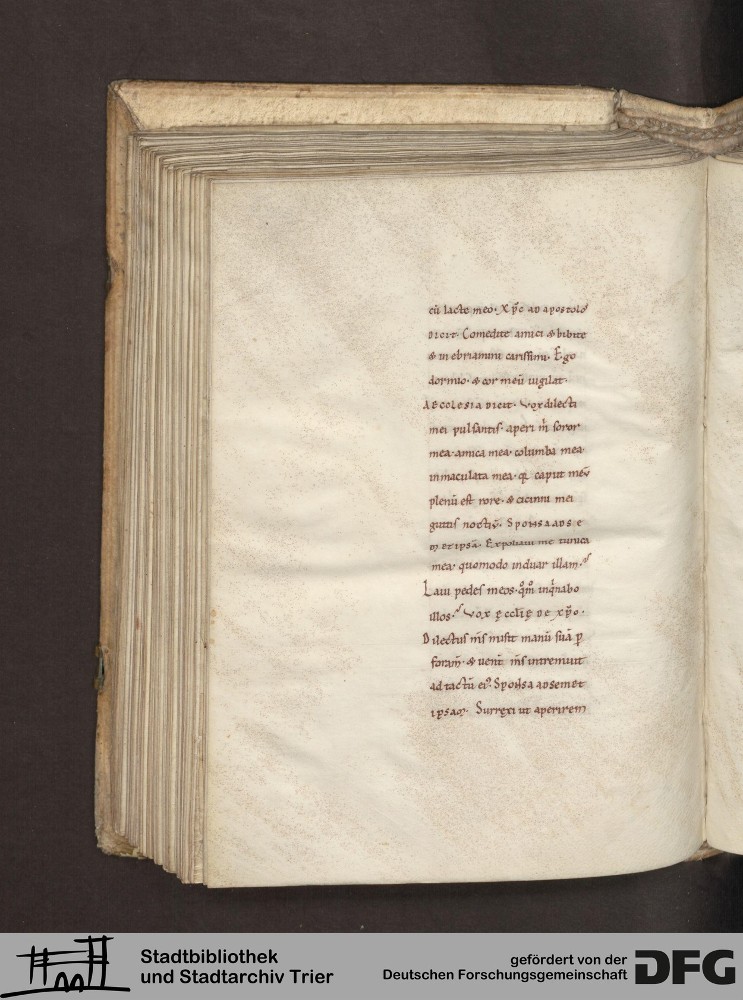 cū lacte meo. Xp̄c ad apostolos
dicit. Comedite amici & bibite
& inebriamini carissimi. Ego
dormio. & cor meū uigilat.
Aecclesia dicit. Vox dilecti
mei pulsantis. aperi m̄ soror
mea. amica mea. columba mea.
inmaculata mea. q̄ caput meū
plenū est rore. & cicinni mei
guttis noctiū. Sponsa ad se
met ipsā. Expoliaui me tunica
mea. quomodo induar illam.
Laui pedes meos. qm̄ inqͥnabo
illos. Vox ęcclię de xp̄o.
Dilectus m̄s misit manū suā p̱
foram̄. & uent̄ m̄s intremuit
ad tactū eiꝰ. Sponsa ad semet
ipsam. Surręxi ut aperirem
Stadtbibliothek
und Stadtarchiv Trier
gefördert von der
Deutschen Forschungsgemeinschaft
DFG